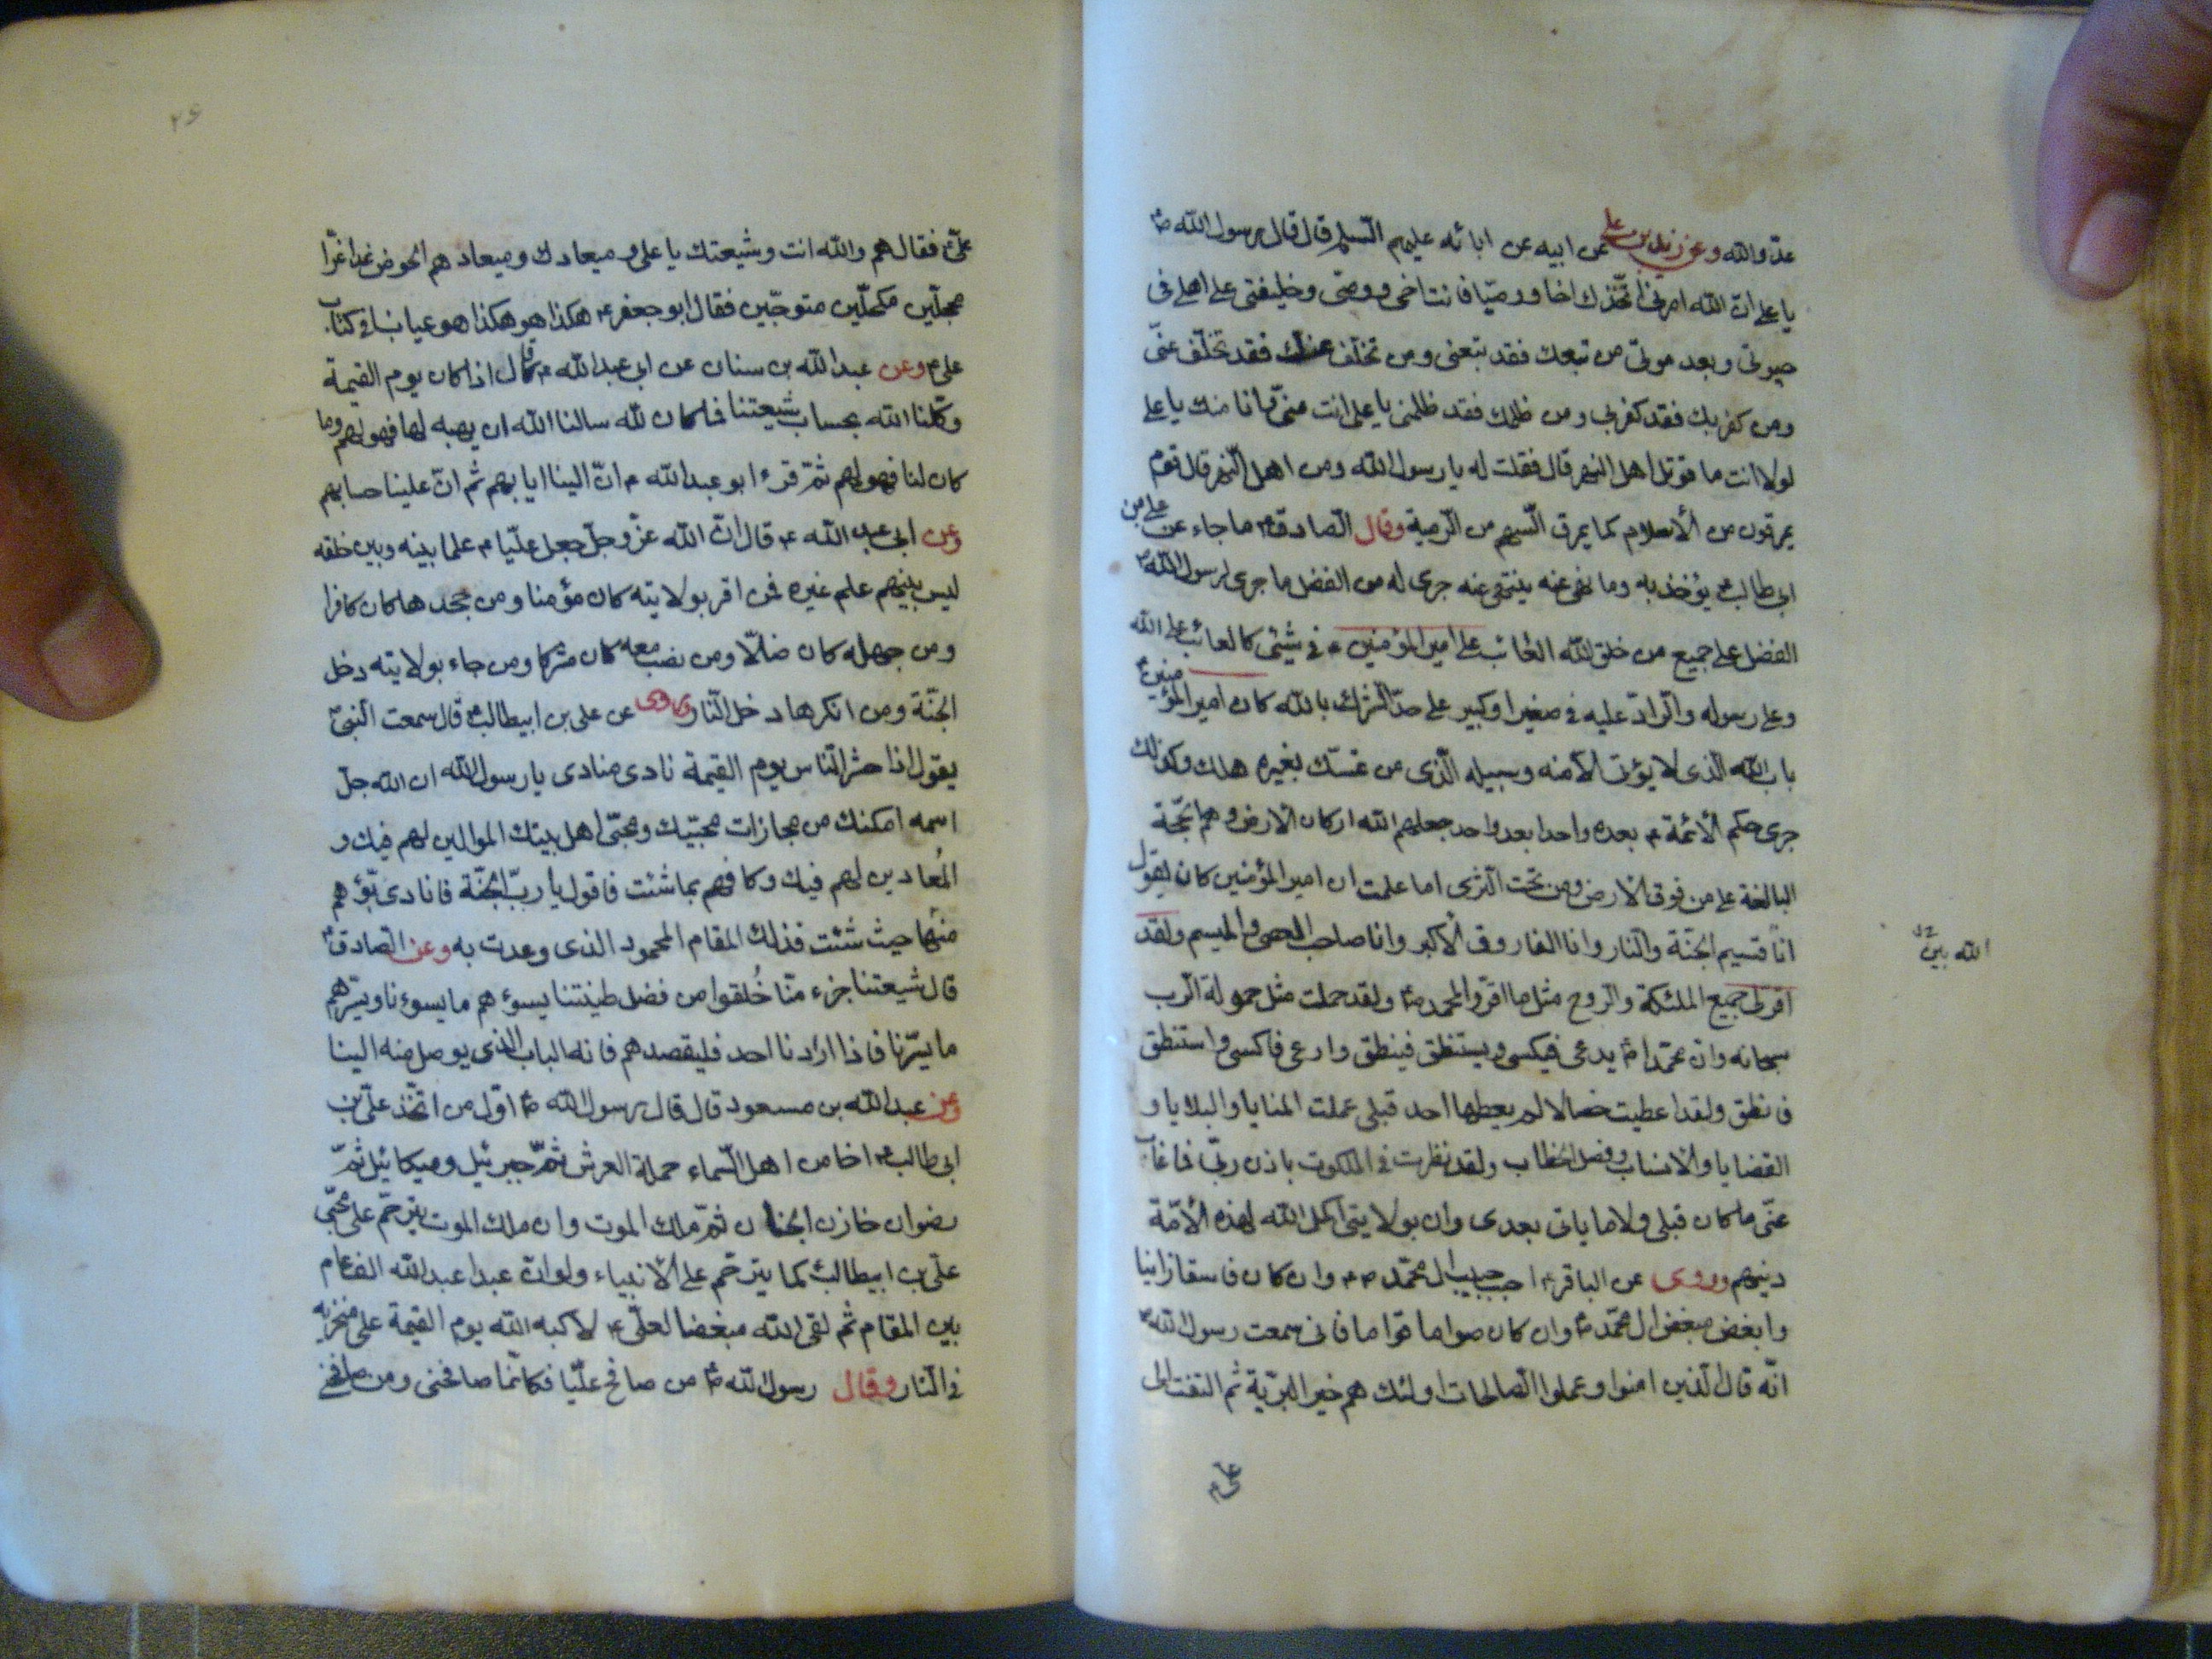 عدو الله وعن زيد بن علي عن ابيه عن ابائه عليهم السلم قال قال رسول الله ص
يا علي ان الله امرني ان اتخذك اخا ووصيا فانت اخي ووصي وخليفتي على اهلي في
حيوتي وبعد موتي من تبعك فقد تبعني ومن تخلف عنك فقد تخلف عني
ومن كفر بك فقد كفر بي ومن ظلمك فقد ظلمني يا علي انت مني وانا منك يا علي
لولا انت ما قوتل اهل النهر قال فقلت له يا رسول الله ومن اهل النهر قال قوم
يمرقون من الاسلام كما يمرق السهم من الرمية وقال الصادق ع ما جاء عن علي بن
ابي طالب ع يؤخذ به وما نهى عنه ينتهى عنه جرى له من الفضل ما جرى لرسول الله ص
الفضل على جميع من خلق الله العائب على امير المؤمنين ع في شيئ كالعائب على الله
وعلى رسوله والراد عليه في صغير او كبير على حد الشرك بالله كان امير المؤمنين ع
باب الله الذي لا يؤتى الا منه وسبيله الذي من تمسك بغيره هلك وكذلك
جرى حكم الائمة ع بعده واحدا بعد واحد جعلهم الله اركان الارض وهم الحجة
البالغة على من فوق الارض ومن تحت الثرى اما علمت ان امير المؤمنين كان يقول
انا قسيم الجنة والنار وانا الفاروق الاكبر وانا صاحب العصى والميسم ولقد
الله بين
اقر لي جميع الملئكة والروح مثل ما اقروا لمحمد ص ولقد حملت مثل حمولة الرب
سبحانه وان محمدا ص يدعى فيكسى ويستنطق فينطق وادعى فاكسى واستنطق
فانطق ولقد اعطيت خصالا لم يعطها احد قبلي علمت المنايا والبلايا و
القضايا والانساب وفصل الخطاب ولقد نظرت في الملكوت باذن ربي فما غاب
عني ما كان قبلي ولا ما ياتي بعدي وان بولايتي اكمل الله لهذه الامة
دينهم وروى عن الباقر ع احب حبيب ال محمد ص وان كان فاسقا زانيا
وابغض مبغض ال محمد ص وان كان صواما قواما فاني سمعت رسول الله ص
انه قال الذين امنوا وعملوا الصالحات اولئك هم خير البرية ثم التفت الى
علي ع
٢۶
علي ع فقال هم والله انت وشيعتك يا علي وميعادك وميعاد هم الحوض غدا غرا
محجلين مكحلين متوجين فقال ابو جعفر ع هكذا هو هكذا هو عيانا في كتاب
علي ع وعن عبد الله بن سنان عن ابي عبد الله ع قال اذا كان يوم القيمة
وكلنا الله بحساب شيعتنا فما كان لله سالنا الله ان يهبه لها فهو لهم وما
كان لنا فهو لهم ثم قرء ابو عبد الله ع ان الينا ايابهم ثم ان علينا حسابهم
وعن ابي عبد الله ع قال ان الله عز وجل جعل عليا ع علما بينه وبين خلقه
ليس بينهم علم غيره فمن اقر بولايته كان مؤمنا ومن جحدها كان كافرا
ومن جهله كان ضالا ومن نصب معه كان مشركا ومن جاء بولايته دخل
الجنة ومن انكرها دخل النار وروى عن علي بن ابيطالب ع قال سمعت النبي
يقول اذا حشر الناس يوم القيمة نادى منادي يا رسول الله ان الله جل
اسمه امكنك من مجازات محبيك ومحبي اهل بيتك الموالين لهم فيك و
المعادين لهم فيك وكافهم بما شئت فاقول يا رب الجنة فانادى بوؤهم
منها حيث شئت فذلك المقام المحمود الذي وعدت به وعن الصادق ع
قال شيعتنا جزء منا خلقوا من فضل طينتنا يسوءهم ما يسوءنا ويسرهم
ما يسرنا فاذا ارادنا احد فليقصدهم فانه الباب الذي يوصل منه الينا
وعن عبد الله بن مسعود قال قال رسول الله ص اول من اتخذ علي بن
ابي طالب ع اخا من اهل السماء حملة العرش ثم جبرئيل وميكائيل ثم
رضوان خازن الجنان ثم ملك الموت وان ملك الموت يترحم على محبي
علي بن ابيطالب ع كما يترحم على الانبياء ولو ان عبدا عبد الله الف عام
بين المقام ثم لقى الله مبغضا لعلي ع لاكبه الله يوم القيمة على منخريه
في النار وقال رسول الله ص من صافح عليا فكانما صافحني ومن صافحني